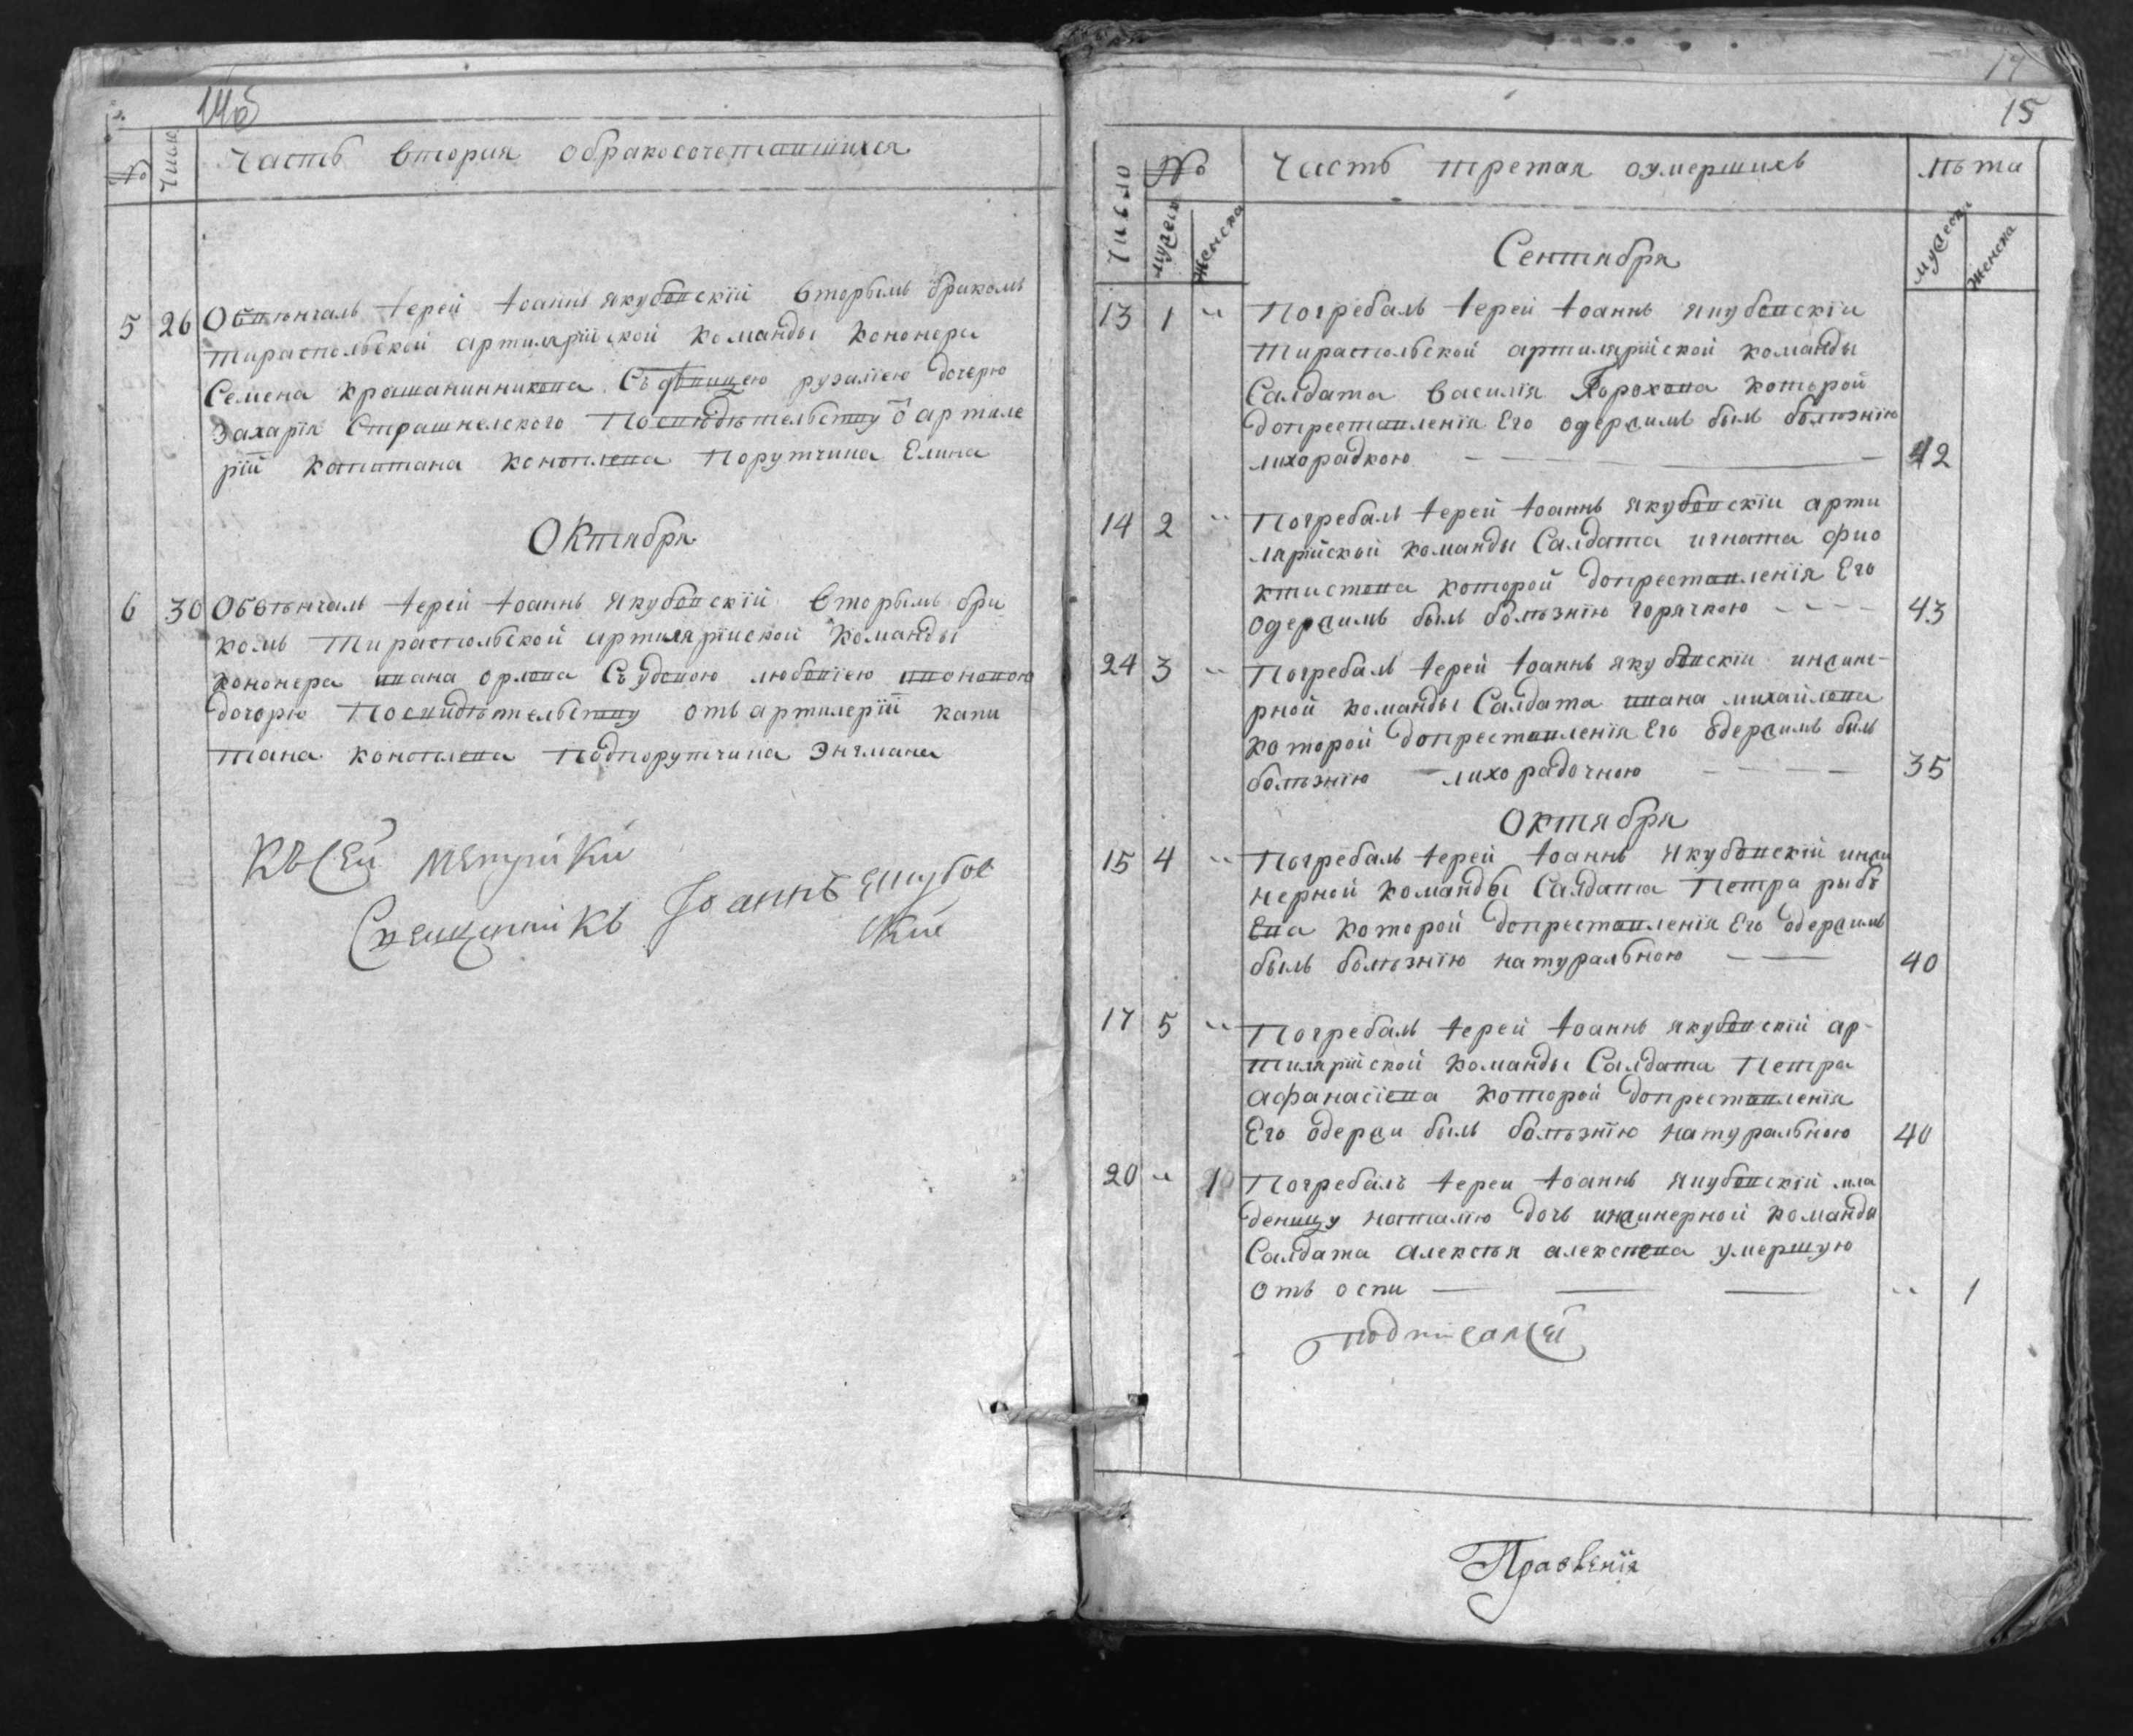 14об
№ Число Часть вторая обракосочетавшихся
5 26 Обвѣнчалъ Іерей Іоаннъ Якубовскій вторымъ бракомъ
тираспольской артилярійской команды кононера
Семена крашанинникова Съ дѣвицею рузаліею дочерю
Захарія Страшнелского Посвидѣтельству ѿ артиле
рій капитана коноплева Порутчика Елина
Октября
6 30 Обвѣнчалъ Іерей Іоаннъ Якубовскій вторымъ бра
комъ Тираспольской артилярійской команды
кононера ивана орлова Съ удовою любовіею ивановою
дочорю Посвидѣтельству отъ артилерій капи
тана коноплева Подпорутчика Энгмана
Къ сей метрики
Священникъ Іоаннъ Якубов
ский
17
15
Число № Часть третая оумершихъ лѣта
мужеск женска мужеска женска
Сентября
13 1 „ Погребалъ Іерей Іоаннъ Якубовскій
Тираспольской артилярійской команды
Салдата василія Горохова которой
допреставленія Его одержимъ былъ болѣзнію
лихорадкою 42
14 2 „ Погребалъ Іерей Іоаннъ Якубовскіи арти
лярійской команды Салдата игната фио
ктистова которой допреставленія Его
одержимъ былъ болѣзнію горячкою 43
24 3 „ Погребалъ Іерей Іоаннъ якубовскіи инжине-
рной команды Салдата ивана михайлова
которой допреставленія Его одержимъ былъ
болѣзнію лихорадочною 35
Октября
15 4 „ Погребалъ Іерей Іоаннъ Якубовскій инжи
нерной команды Салдата Петра рыбъ
Ева которой допреставленія Его одержимъ
былъ болѣзнію натуральною 40
17 5 „ Погребалъ Іерей Іоаннъ якубовскій ар-
тилярійской команды Салдата Петра
афанасіева которой допреставленія
Его одержи былъ болѣзнію натуральною 40
20 „ 1 Погребалъ Іереи Іоаннъ Якубовскій мла
деницу наталію дочь инжинерной команды
Салдата алексѣя алексѣева умершую
отъ оспи „ 1
подписалсѧ
Правленія